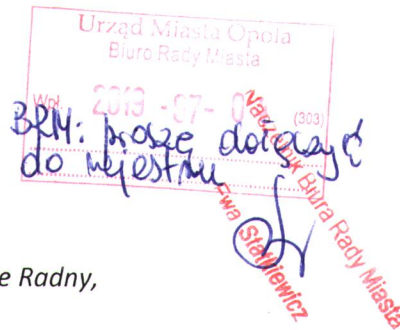 Urząd Miasta Opola
Biuro Rady Miasta
Wpł. 2019 -07- 0
(303)
BRM: proszę dołączyć
do rejestru
Naczelnik Biura Rady Miasta
Ewa
e Radny,